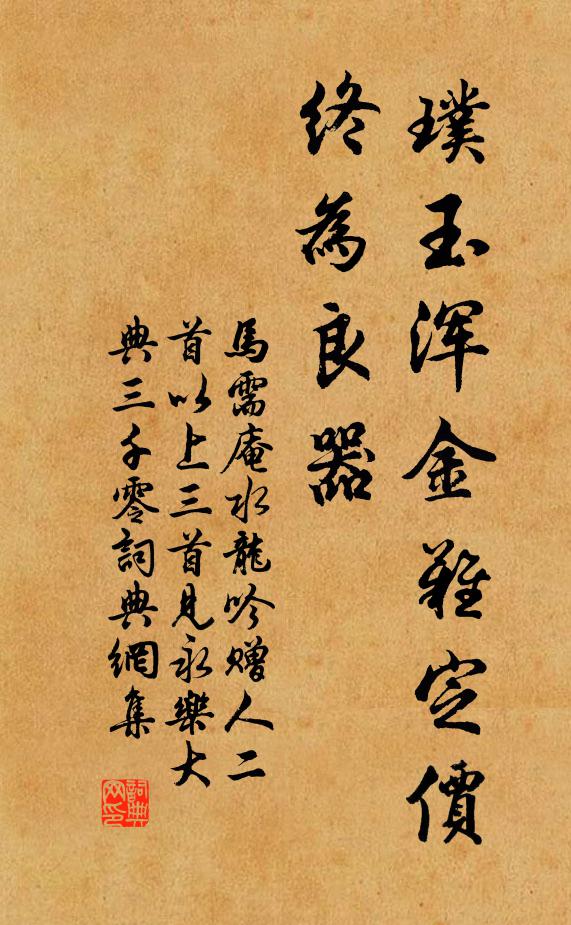 璞玉浑金難定價
終為良器
馬需庵水龍吟贈人二
首以上三首見永樂大
典三千零詞典網集
詞典
网印